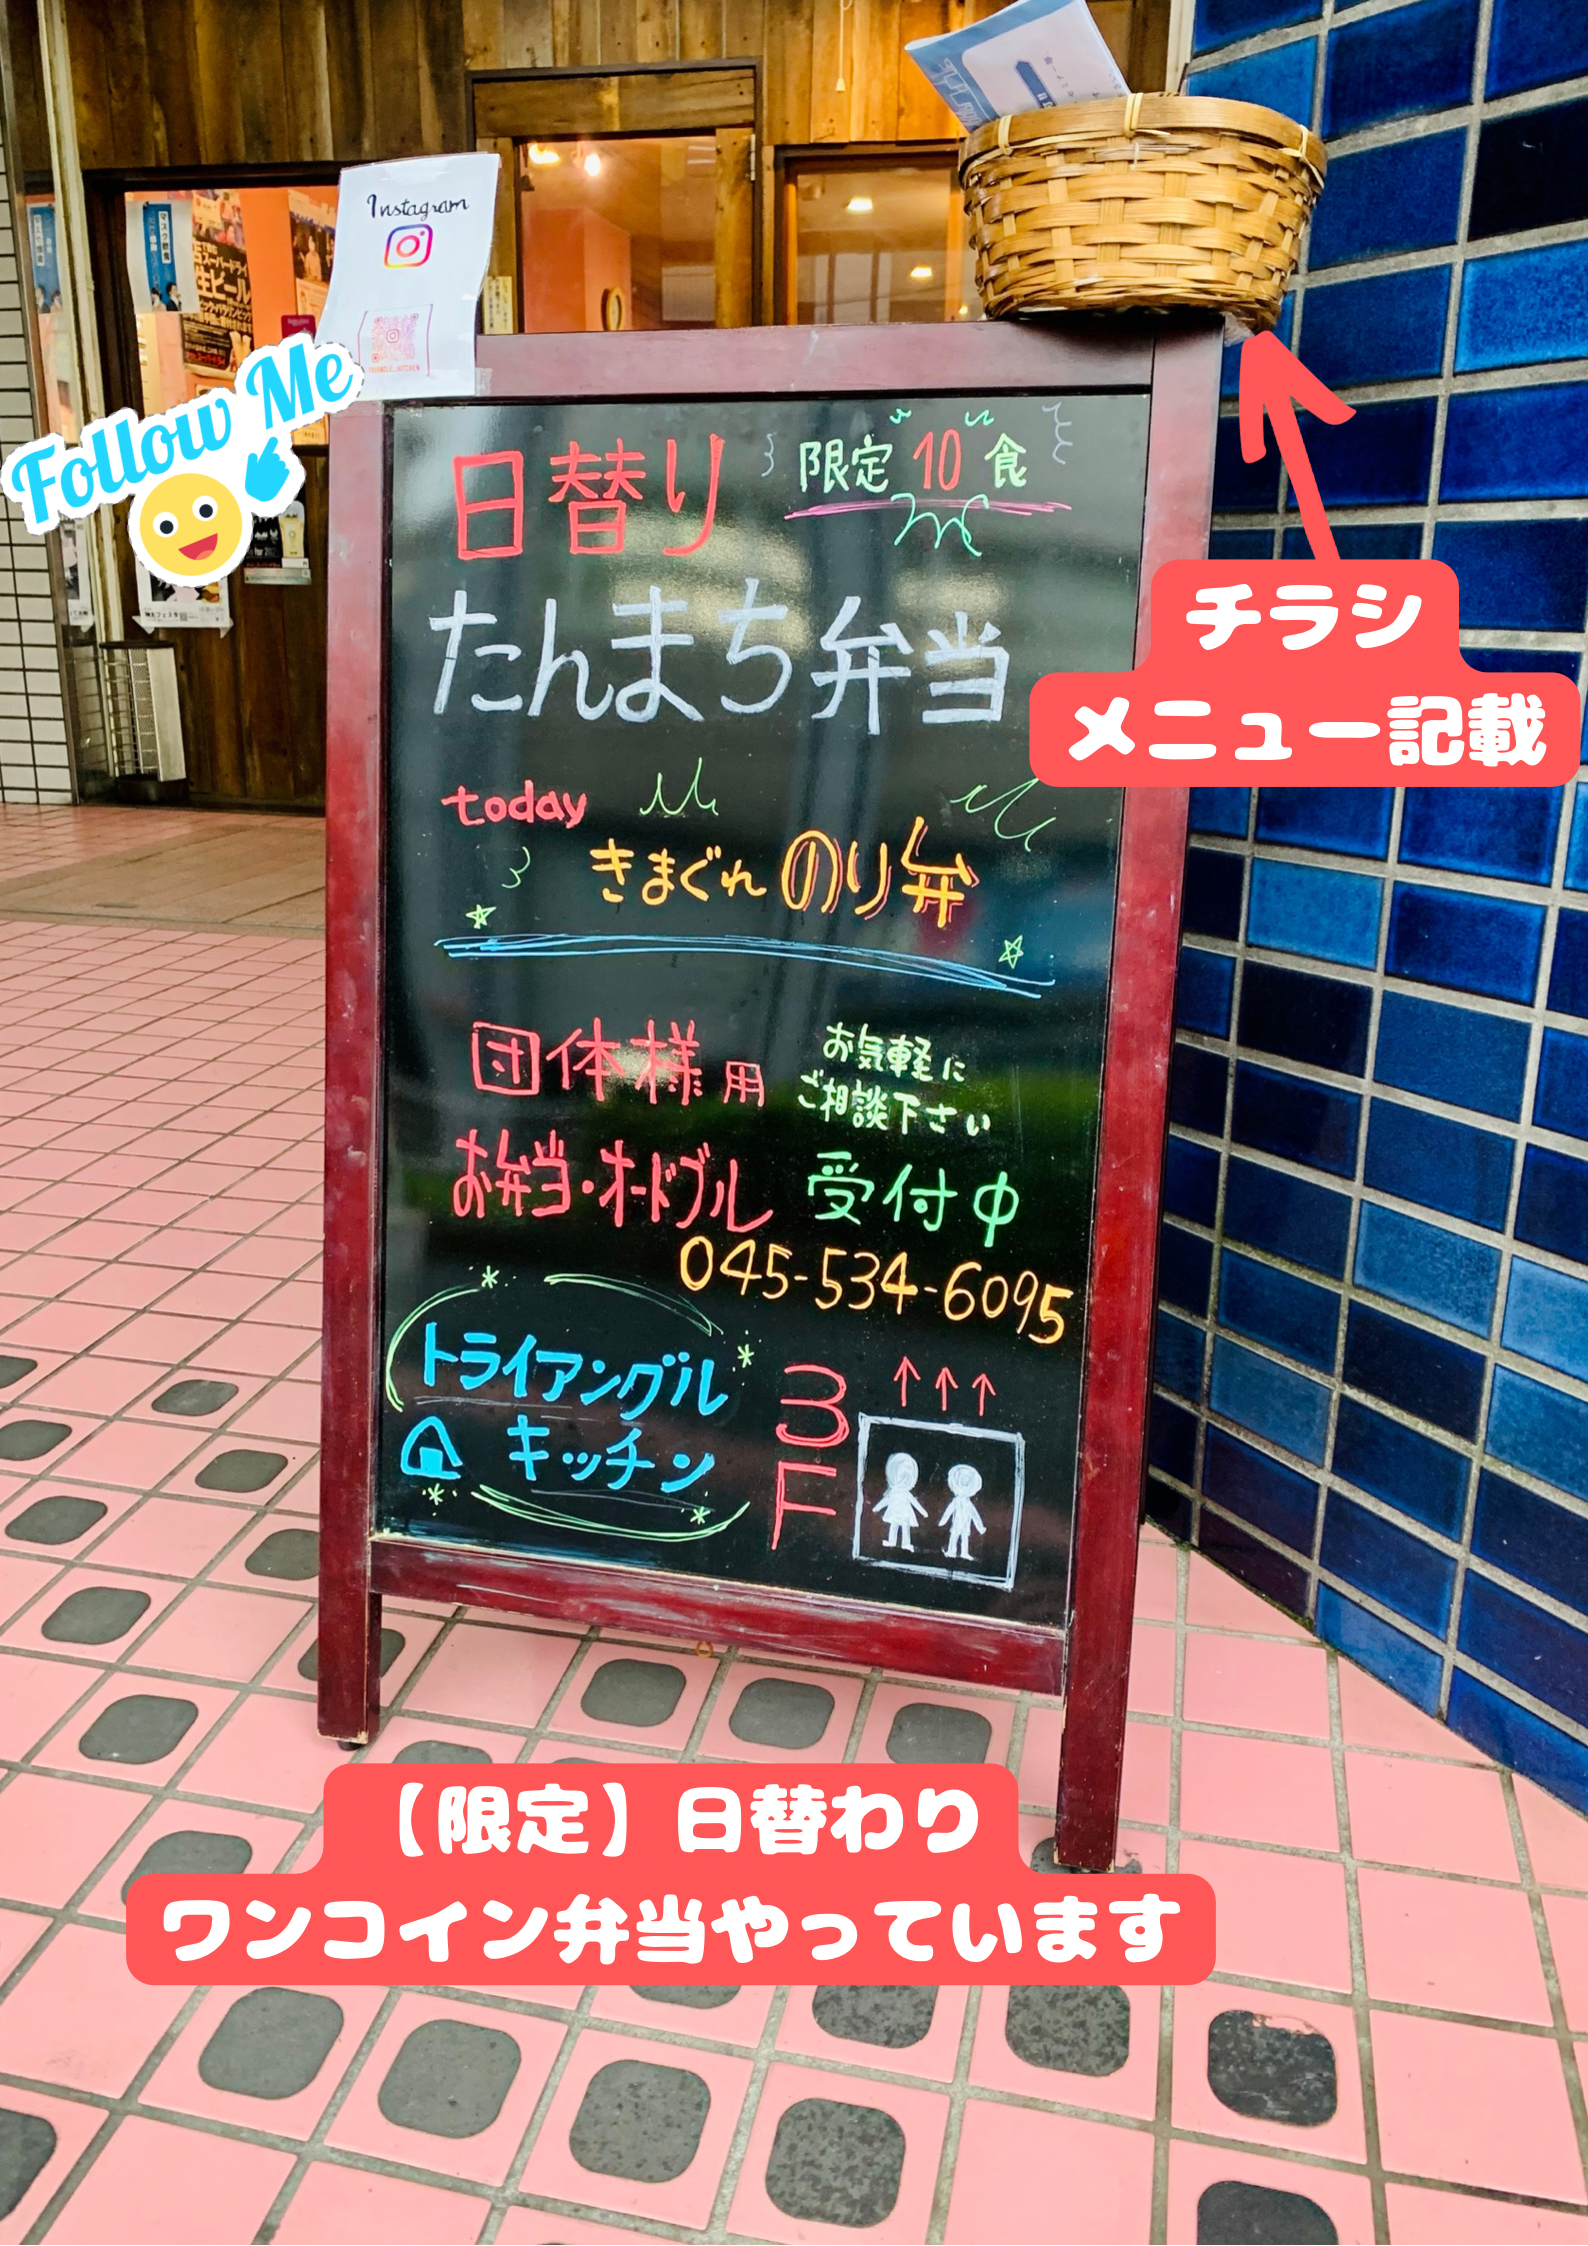 Instagram
TRIANGLE_KITCHEN
Follow Me
日替り 限定10食
たんまち弁当
today
きまぐれのり弁
団体様用 お気軽に
ご相談下さい
お弁当・オードブル 受付中
045-534-6095
トライアングル
キッチン
3F
チラシ
メニュー記載
【限定】日替わり
ワンコイン弁当やっています
スーパードライ
生ビール